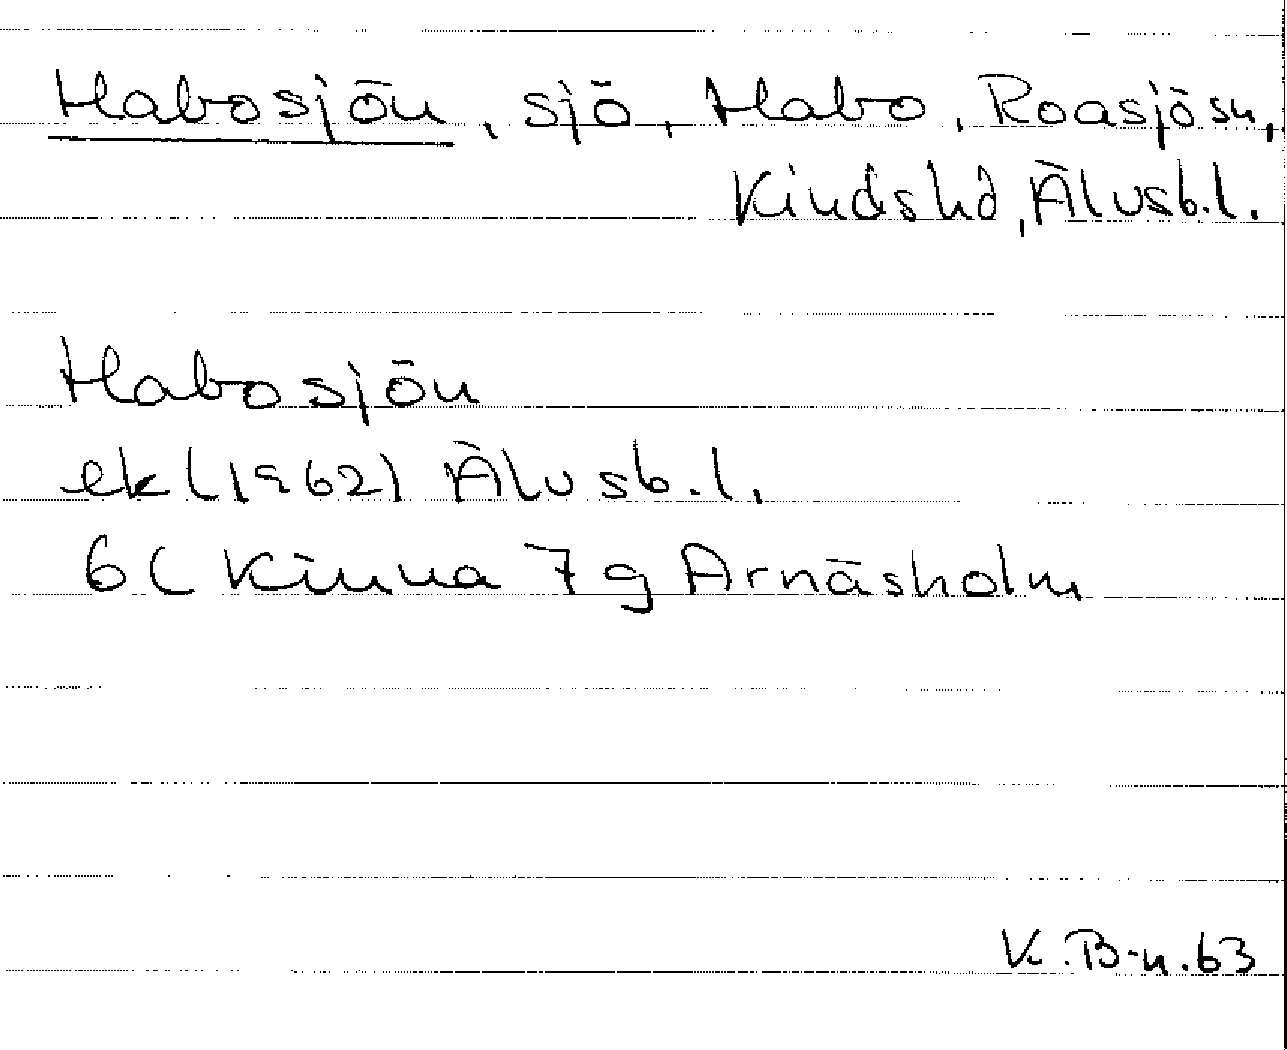 Habosjön, sjö, Habo, Roasjö sn,
Kinds hd, Älvsb.l.
Habosjön
ek (1962) Älvsb.l.
6C Kinna 7g Arnäsholm
K.B-n.63